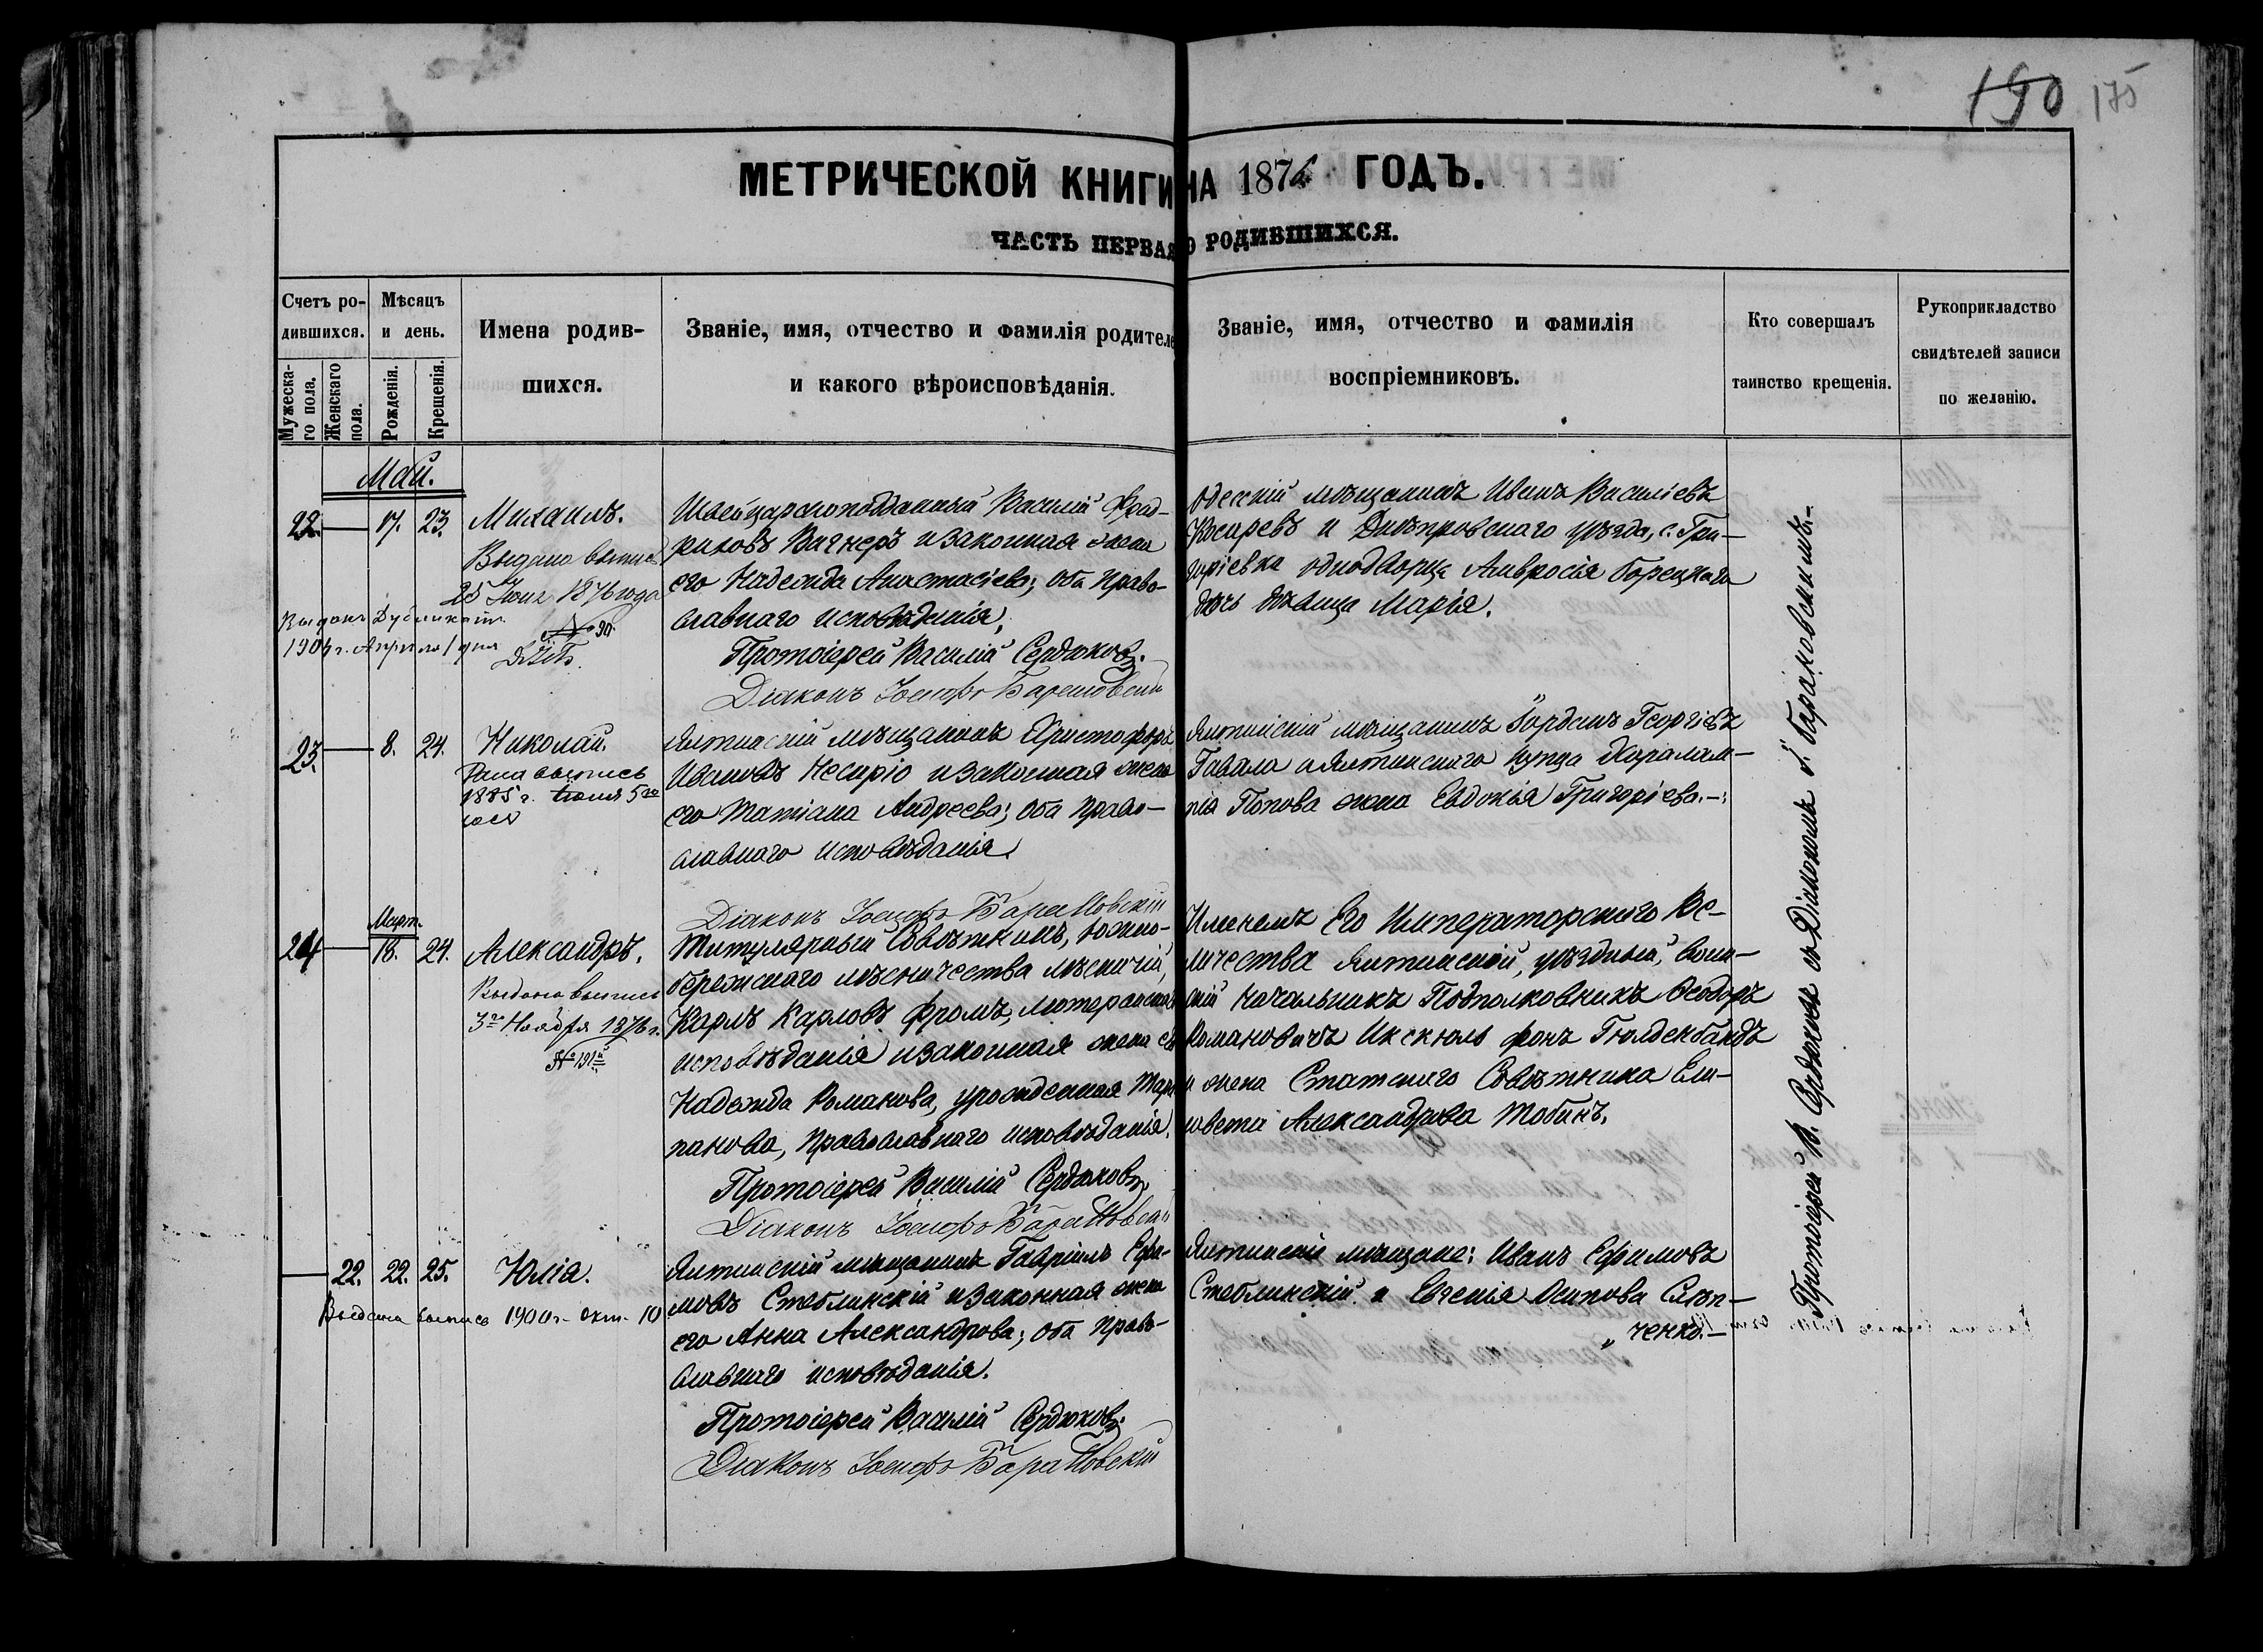 190 175
МЕТРИЧЕСКОЙ КНИГИ НА 1876 ГОДЪ.
ЧАСТЬ ПЕРВАЯ О РОДИВШИХСЯ.
Счетъ ро-
дившихся.
Мужеска-
го пола.
Женскаго
пола.
Мѣсяцъ
и день.
Рожденія.
Крещенія.
Имена родив-
шихся.
Званіе, имя, отчество и фамилія родителе
и какого вѣроисповѣданія.
Званіе, имя, отчество и фамилія
воспріемниковъ.
Кто совершалъ
таинство крещенія.
Рукоприкладство
свидѣтелей записи
по желанію.
Май.
22. 17. 23. Михаилъ.
Выдана выпись
25 Іюня 1876 года
№ 90.
Выданъ Дубликатъ
1904 г. Апрѣля 1 дня
Швейцарскоподданный Василій Фрид-
риховъ Вагнеръ и законная жена
его Надежда Анастасіева; оба право-
славнаго исповѣданія.
Протоіерей Василій Сердюковъ.
Діаконъ Іосифъ Барановскій
Одесскій мѣщанинъ Иванъ Василіевъ
Косаревъ и Днѣпровскаго уѣзда, с. Гри-
горіевки однодворца Амвросія Борецкаго
дочь дѣвица Марія.
23. 8. 24. Николай.
Дана выпись
1885 г. Іюня 5го
Ялтинскій мѣщанинъ Христофоръ
Ивановъ Несиріо и законная жена
его Татіана Андреева; оба право-
славнаго исповѣданія.
Діаконъ Іосифъ Барановскій
Ялтинскій мѣщанинъ Іорданъ Георгіевъ
Гавала и Ялтинскаго купца Харалам-
пія Попова жена Евдокія Григоріева.
Март.
24 18. 24. Александръ.
Выдана выпись
3го Ноября 1876 г.
№ 191й
Титулярный Совѣтникъ, Южно-
бережскаго лѣсничества лѣсничій,
Карлъ Карловъ Фромъ, лютеранскаго
исповѣданія и законная жена его
Надежда Романова, урожденная Тара
панова, православнаго исповѣданія.
Протоіерей Василій Сердюковъ
Діаконъ Іосифъ Барановскій
Именемъ Его Императорскаго Ве-
личества Ялтинскій, уѣздный, воин-
скій начальникъ Подполковникъ Ѳеодоръ
Романовичъ Икскюль фонъ Гюлденбандъ
и жена Статскаго Совѣтника Ели-
завета Александрова Тобинъ.
22. 22. 25. Юлія.
Выдана выпись 1900 г. окт. 10
Ялтинскій мѣщанинъ Гавріилъ Ефи-
мовъ Стеблинскій и законная жена
его Анна Александрова; оба право-
славнаго исповѣданія.
Протоіерей Василій Сердюковъ.
Діаконъ Іосифъ Барановскій
Ялтинскіе мѣщане: Иванъ Ефимовъ
Стеблинскій и Евгенія Осипова Слюп-
ченко.
Протоіерей В. Сердюковъ съ Діакономъ І. Барановскимъ.